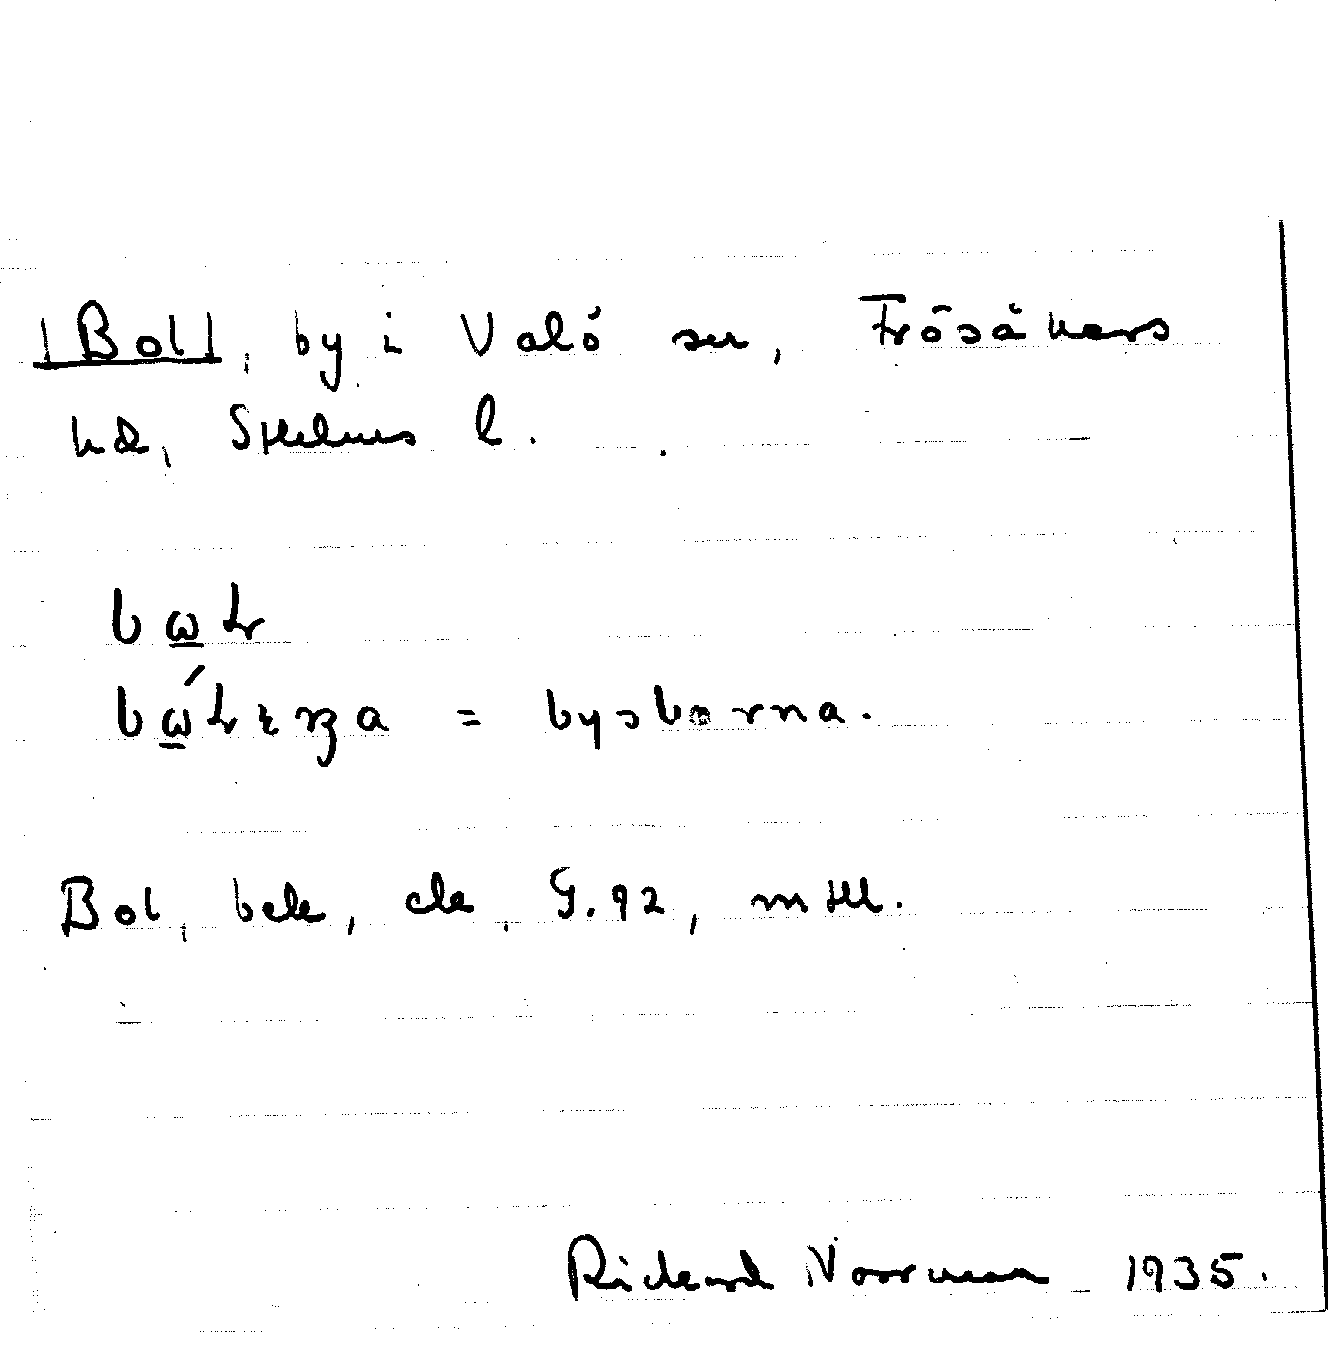 [Bol], by i Valö sn, Frösåkers
hd, Sthlms l.
bɯ̲ɫ
= bysborna.
Bol, beb, G. 92, m fl.
Rickard Norrman 1935.